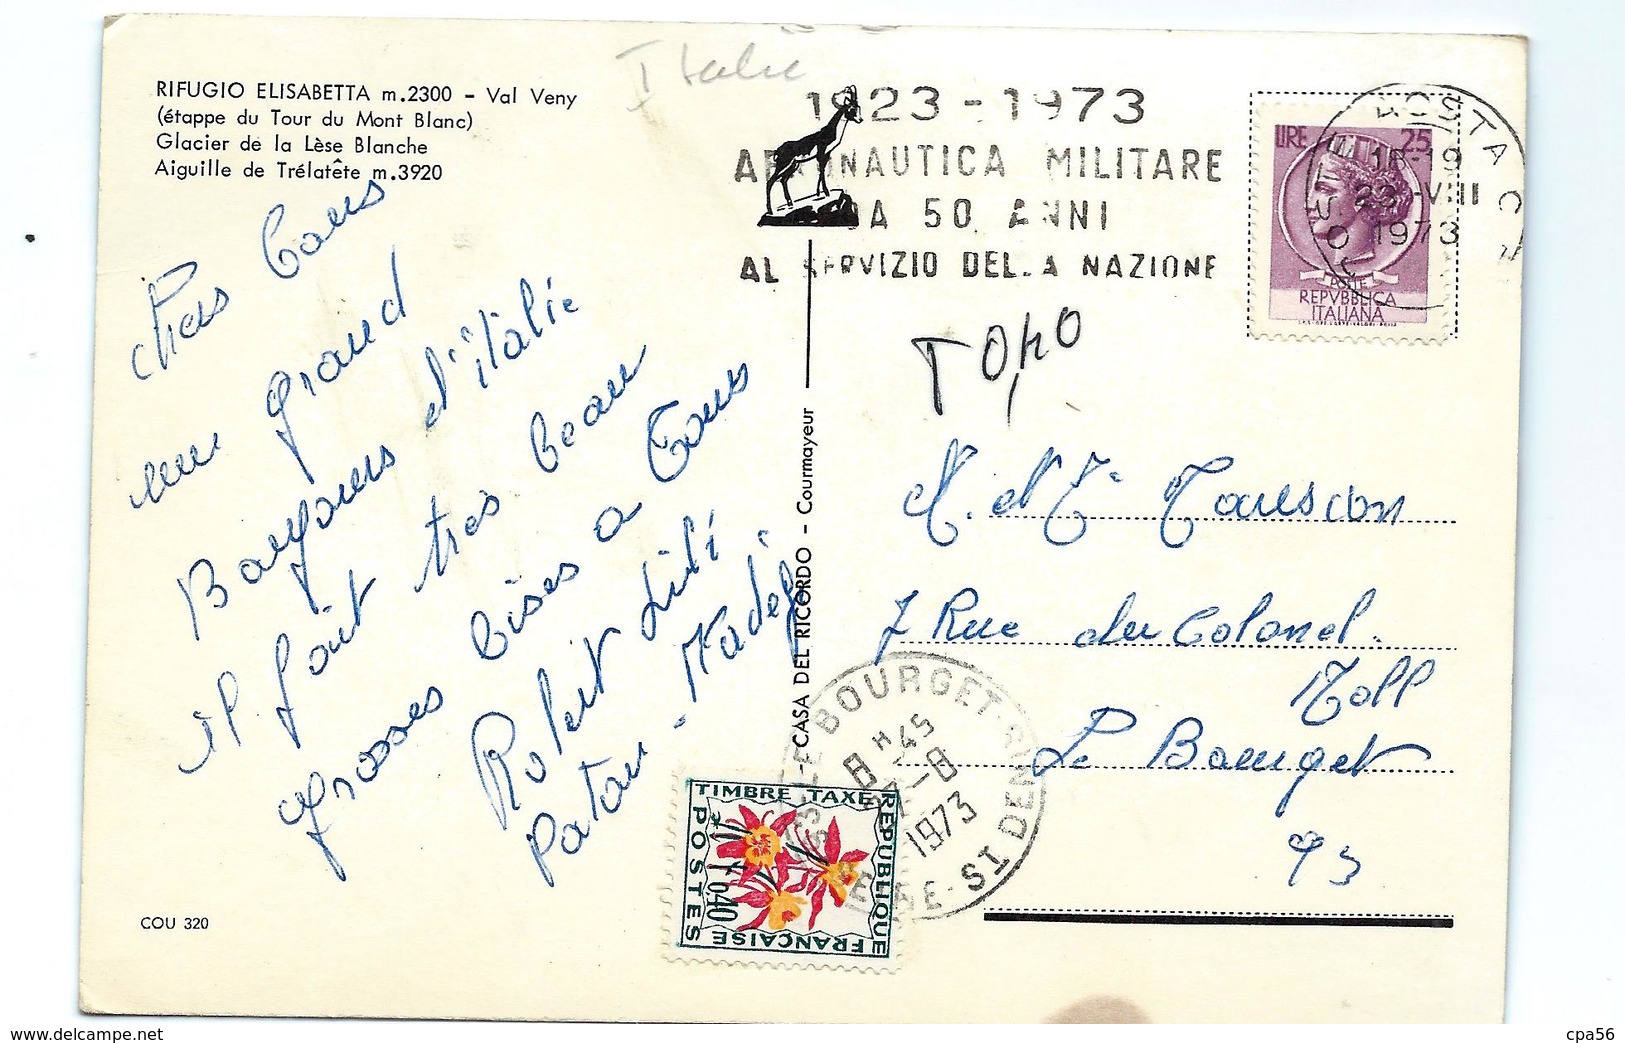 Italie
RIFUGIO ELISABETTA m.2300 - Val Veny
(étappe du Tour du Mont Blanc)
Glacier de la Lèse Blanche
Aiguille de Trélatête m.3920
1923 - 1973
AERONAUTICA MILITARE
DA 50 ANNI
AL SERVIZIO DELLA NAZIONE
AOSTA
15-19
23-VIII
1973
LIRE 25
POSTE
REPVBBLICA
ITALIANA
T 0,40
tous
un grand
d'italie
il fait très beau
grosses bises a tous
Robert Lili
CASA DEL RICORDO - Courmayeur
7 Rue du Colonel
Moll
Le Bourget
93
LE BOURGET
8H45
27-8
1973
SEINE-ST DENIS
TIMBRE TAXE
REPUBLIQUE
FRANÇAISE
POSTES
F 0,40
COU 320
cpa56